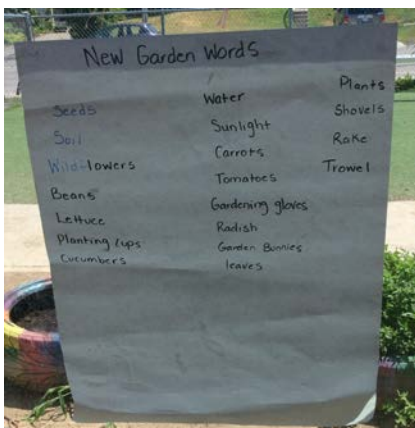 New Garden Words
Seeds
Soil
Wildflowers
Beans
Lettuce
Planting Cups
Cucumbers
Water
Sunlight
Carrots
Tomatoes
Gardening gloves
Radish
Garden Bunnies
leaves
Plants
Shovels
Rake
Trowel